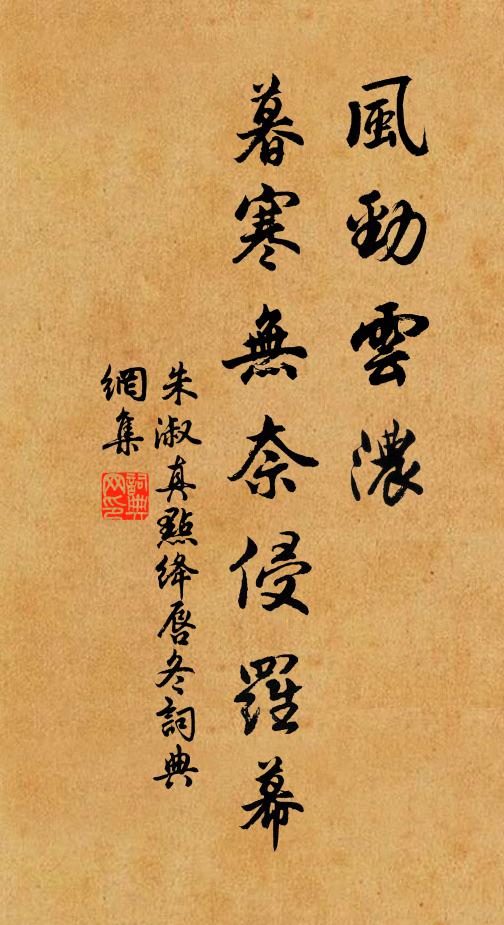 風勁雲濃
暮寒無奈侵羅幕
朱淑真點絳唇冬詞典
網集
詞典
网印